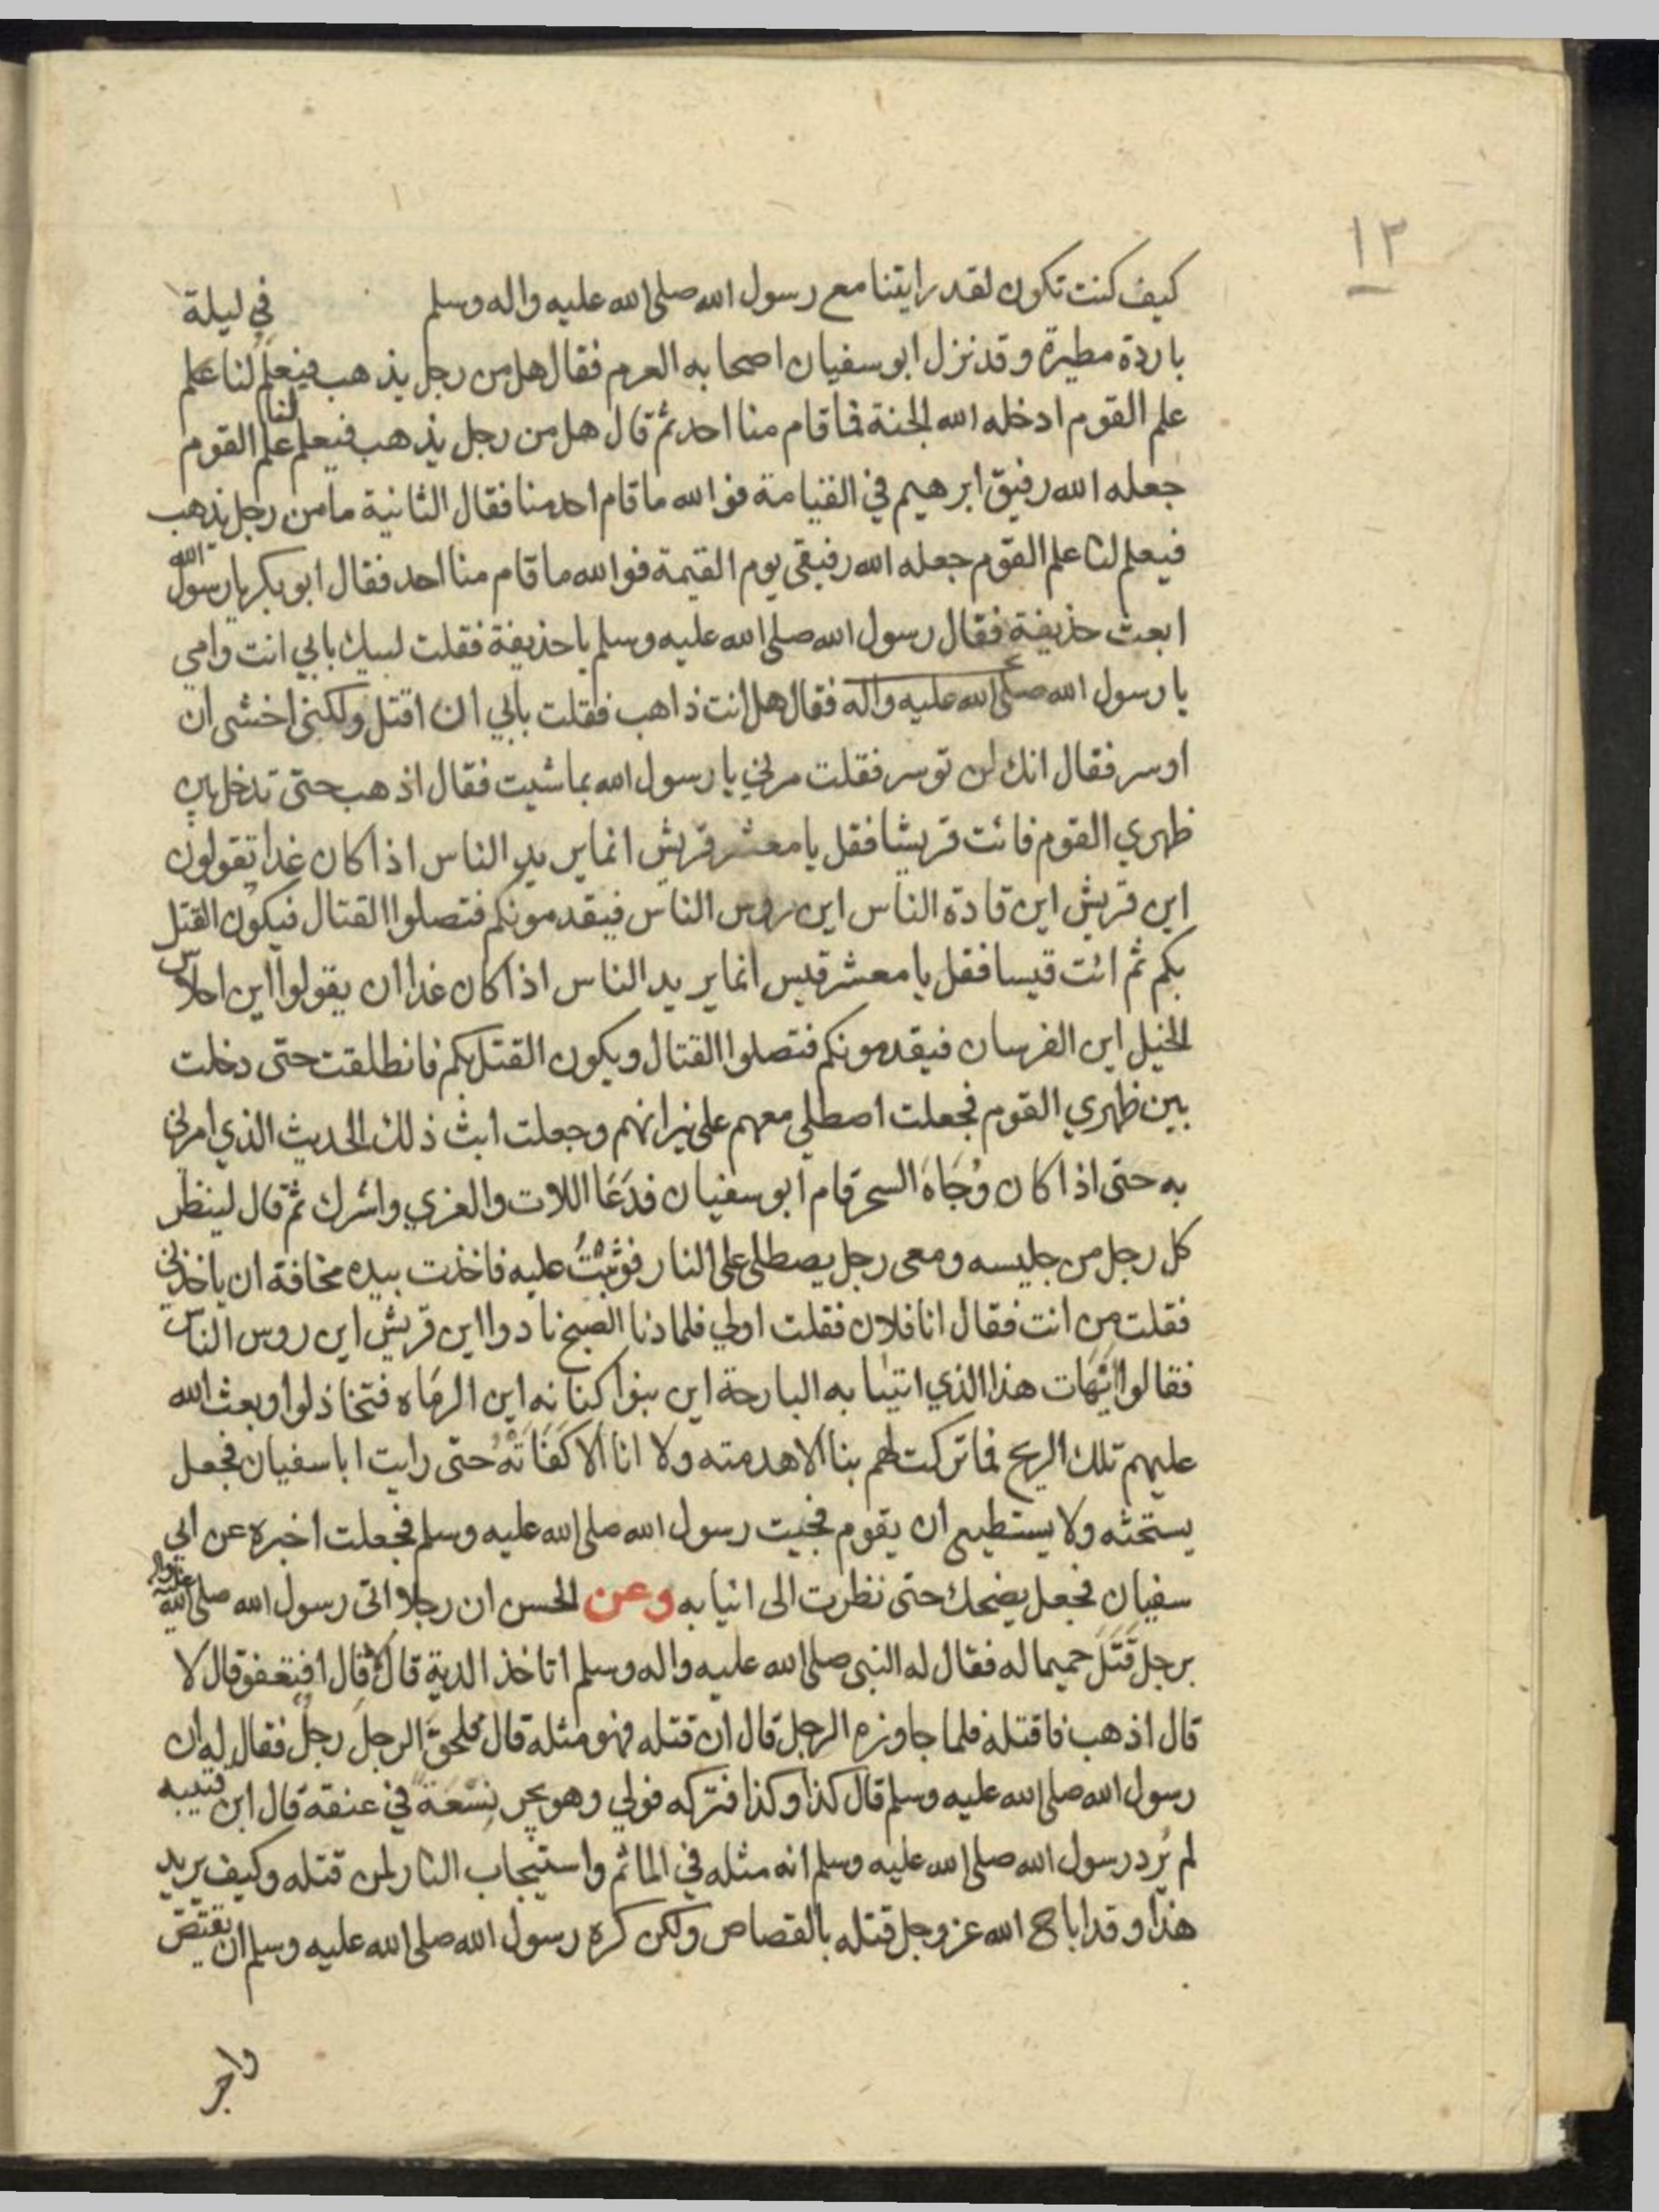 ١٣
كيف كنت تكون لقد رايتنا مع رسول الله صلى الله عليه واله وسلم في ليلة
باردة مطيرة وقد نزل ابو سفيان اصحابه العرم فقال هل من رجل يذهب فيعلم لنا علم
علم القوم ادخله الله الجنة فما قام منا احد ثم قال هل من رجل يذهب فيعلم لنا علم القوم
جعله الله رفيق ابرهيم في القيامة فوالله ما قام احد منا فقال الثانية ما من رجل يذهب
فيعلم لنا علم القوم جعله الله رفيقي يوم القيمة فوالله ما قام منا احد فقال ابو بكر يا رسول الله
ابعث حذيفة فقال رسول الله صلى الله عليه وسلم يا حذيفة فقلت لبيك بابي انت وامي
يا رسول الله صلى الله عليه واله فقال هل انت ذاهب فقلت بابي ان اقتل ولكني اخشى ان
اوسر فقال انك لن توسر فقلت مرني يا رسول الله بما شيت فقال اذهب حتى تدخل بين
ظهري القوم فائت قريشا فقل يا معشر قريش انما يريد الناس اذا كان غدا تقولون
اين قريش اين قادة الناس اين روس الناس فيقدمونكم فتصلوا القتال فيكون القتل
بكم ثم ائت قيسا فقل يا معشر قيس انما يريد الناس اذا كان غدا ان يقولوا اين احلاس
الخيل اين الفرسان فيقدمونكم فتصلوا القتال ويكون القتل بكم فانطلقت حتى دخلت
بين ظهري القوم فجعلت اصطلي معهم على نيرانهم وجعلت ابث ذلك الحديث الذي امرني
به حتى اذا كان وُجَاهَ السحر قام ابو سفيان فدَعَا اللات والعزي واشرك ثم قال لينظر
كل رجل من جليسه ومعي رجل يصطلي على النار فوثَبْتُ عليه فاخذت بيده مخافة ان ياخذني
فقلت من انت فقال انا فلان فقلت اولي فلما دنا الصبح نادوا اين قريش اين روس الناس
فقالوا ايَهَات هذا الذي اتينا به البارحة اين بنوا كنانه اين الرماه فتخاذلوا وبعث الله
عليهم تلك الريح فما تركت لهم بنا الا هدمته ولا انا الا كَفَاَتْهُ حتى رايت ابا سفيان فجعل
يستحثه ولا يستطيع ان يقوم فجيت رسول الله صلى الله عليه وسلم فجعلت اخبره عن ابي
سفيان فجعل يضحك حتى نظرت الى انيابه وعن الحسن ان رجلا اتى رسول الله صلى الله عليه واله
برجل قَتَلَ حميما له فقال له النبي صلى الله عليه واله وسلم اتاخذ الدية قال لا قال افتعفو قال لا
قال اذهب فاقتله فلما جاوزه الرجل قال ان قتله فهو مثله قال فلحقَ الرجلَ رجلٌ فقال له ان
رسول الله صلى الله عليه وسلم قال كذا وكذا فتركه فولي وهو يجر نِسْعَةً في عنقه قال ابن قتيبه
لم يُرد رسول الله صلى الله عليه وسلم انه مثله في الماثم واستيجاب النار لمن قتله وكيف يريد
هذا وقد اباح الله عز وجل قتله بالقصاص ولكن كره رسول الله صلى الله عليه وسلم ان يقتص